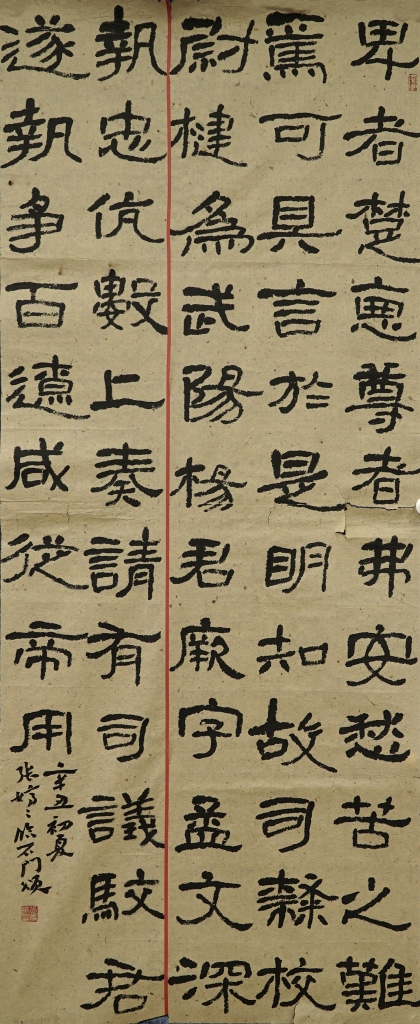 卑者楚惡尊者弗安愁苦之難
焉可具言於是明知故司隸校
尉楗為武陽楊君厥字孟文深
執忠伉數上奏請有司議駮君
遂執爭百遼咸從帝用
辛丑初夏
张婷〻临石门颂